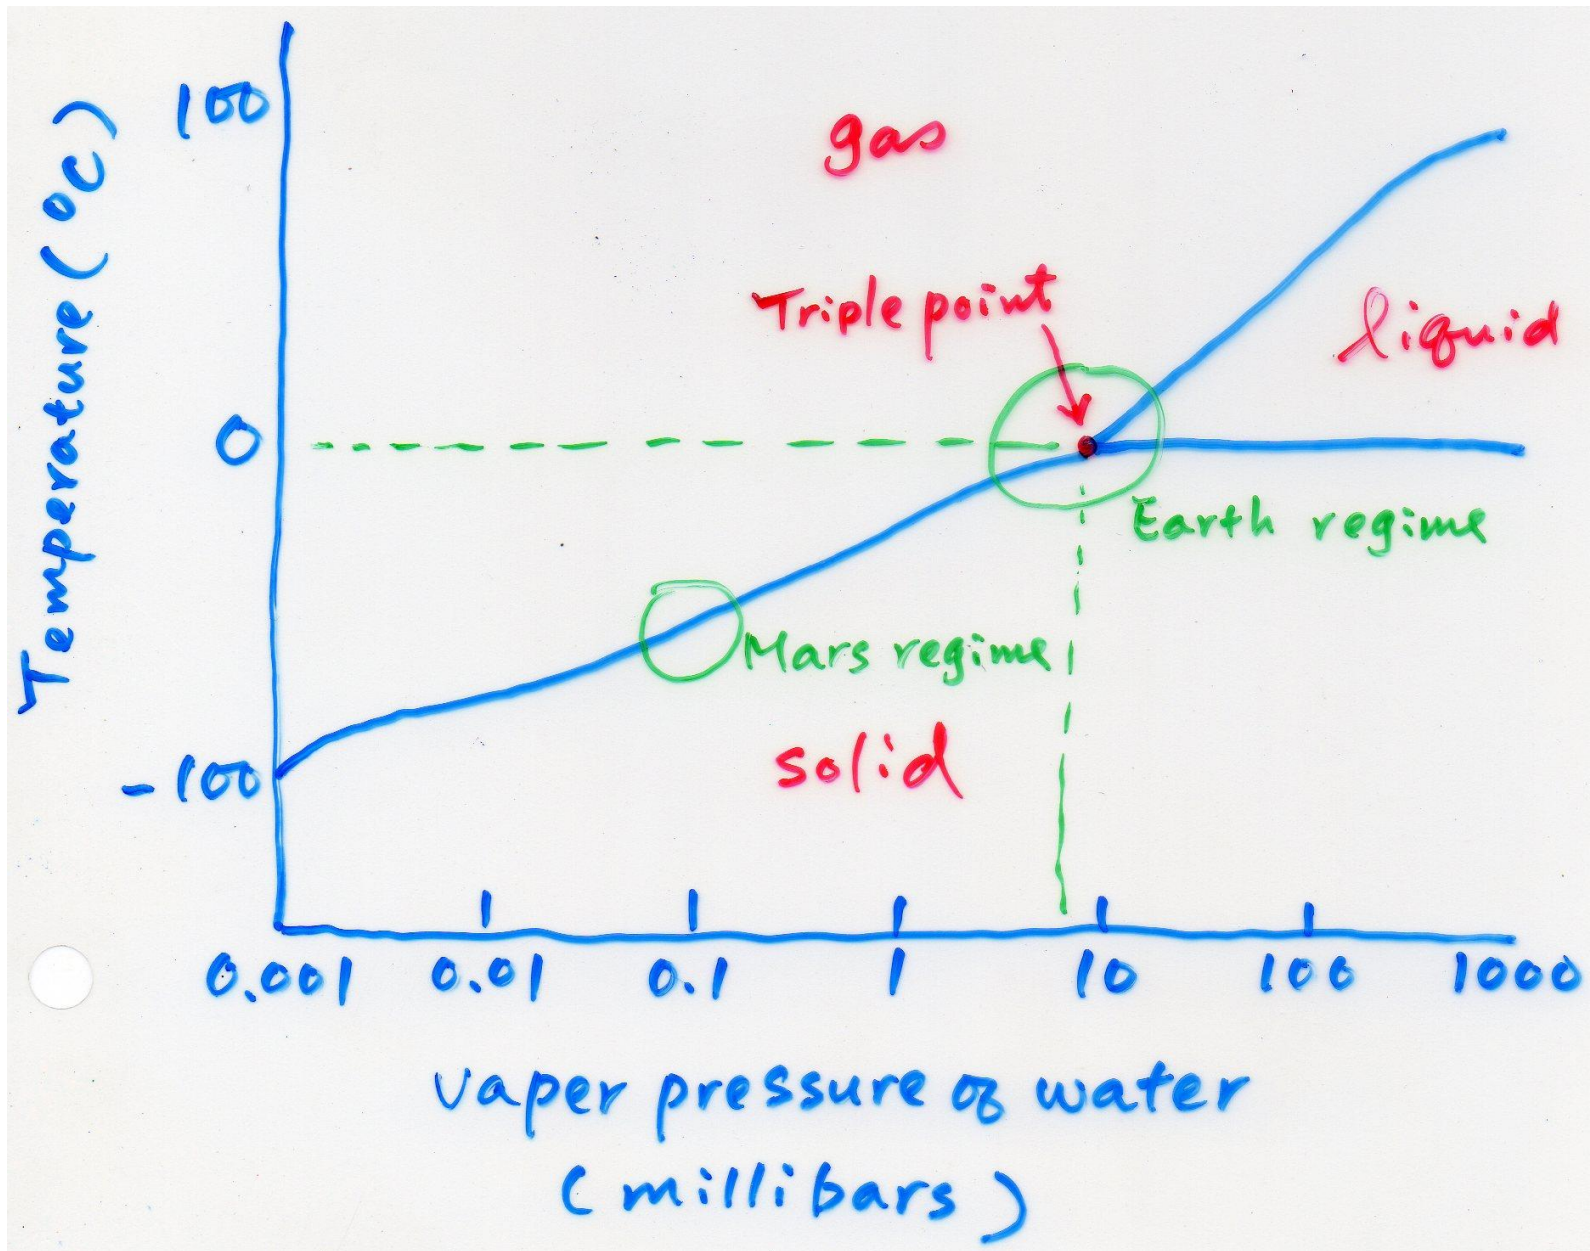 Temperature (°C)
100
gas
Triple point
liquid
0
Earth regime
Mars regime
solid
- 100
0.001 0.01 0.1 1 10 100 1000
vaper pressure of water
(millibars)